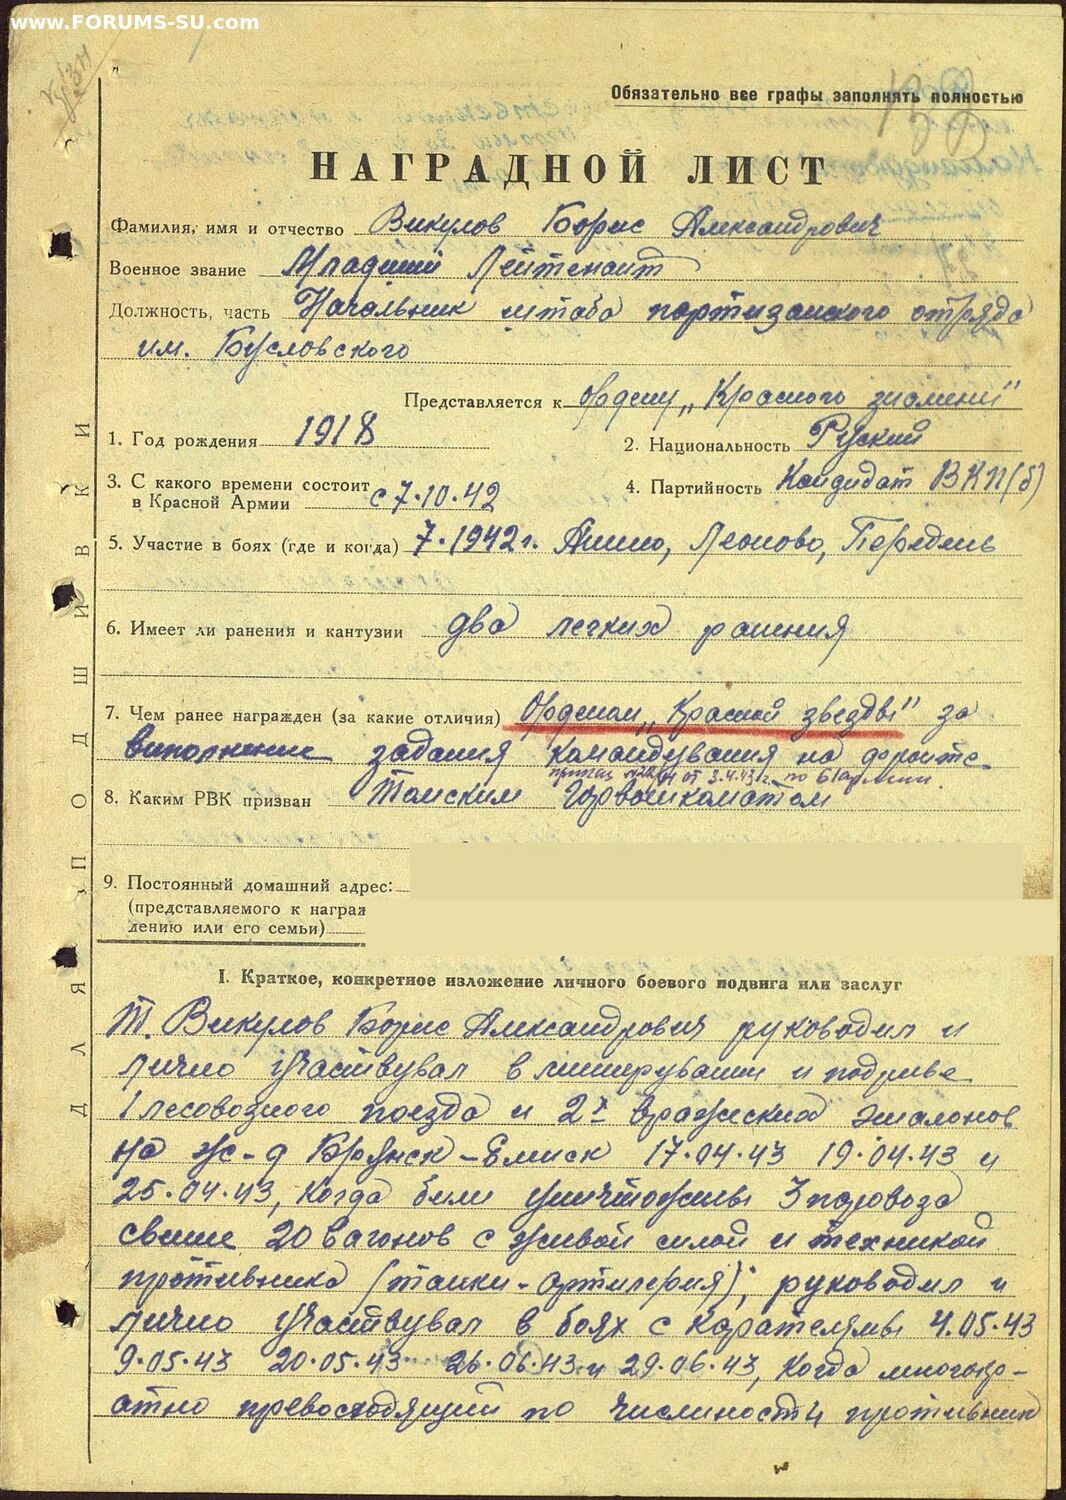 www.FORUMS-SU.com
Обязательно все графы заполнять полностью
НАГРАДНОЙ ЛИСТ
Фамилия, имя и отчество Викулов Борис Александрович
Военное звание Младший Лейтенант
Должность, часть Начальник штаба партизанского отряда
им.
Представляется к ордену „Красного знамени"
1. Год рождения 1918
2. Национальность Руский
3. С какого времени состоит
в Красной Армии с 7.10.42
4. Партийность Кандидат ВКП(б)
5. Участие в боях (где и когда) 7.1942 г. Анино, Леоново, Передель
6. Имеет ли ранения и кантузии два легких ранения
7. Чем ранее награжден (за какие отличия) Орденом „Красной звезды" за
виполнение задания командувания на фронте
от 3.4.43 г. по 61 армии
8. Каким РВК призван Томским Горвоенкоматом
9. Постоянный домашний адрес:
(представляемого к награж
дению или его семьи)
ДЛЯ ПОДШИВКИ
I. Краткое, конкретное изложение личного боевого подвига или заслуг
Т. Викулов Борис Александрович руководил и
лично участвувал в минирувании и подриве
1 лесовозного поезда и 2х вражиских эшалонов
на ж-д Брянск – 17.04.43 19.04.43 и
25.04.43, когда били уничтожены 3 паровоза
свише 20 вагонов с живой силой и техникой
противника (танки-артилерия); руководил и
лично участвувал в боях с карателямы 4.05.43
9.05.43 20.05.43 26.06.43 и 29.06.43, когда многокр-
атно превосходящий по числиности противник